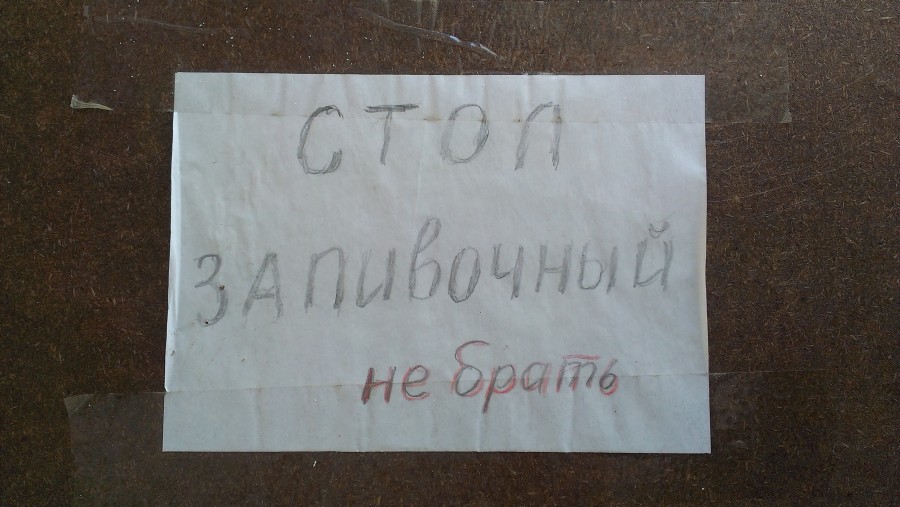 СТОЛ
ЗАЛИВОЧНЫЙ
не брать